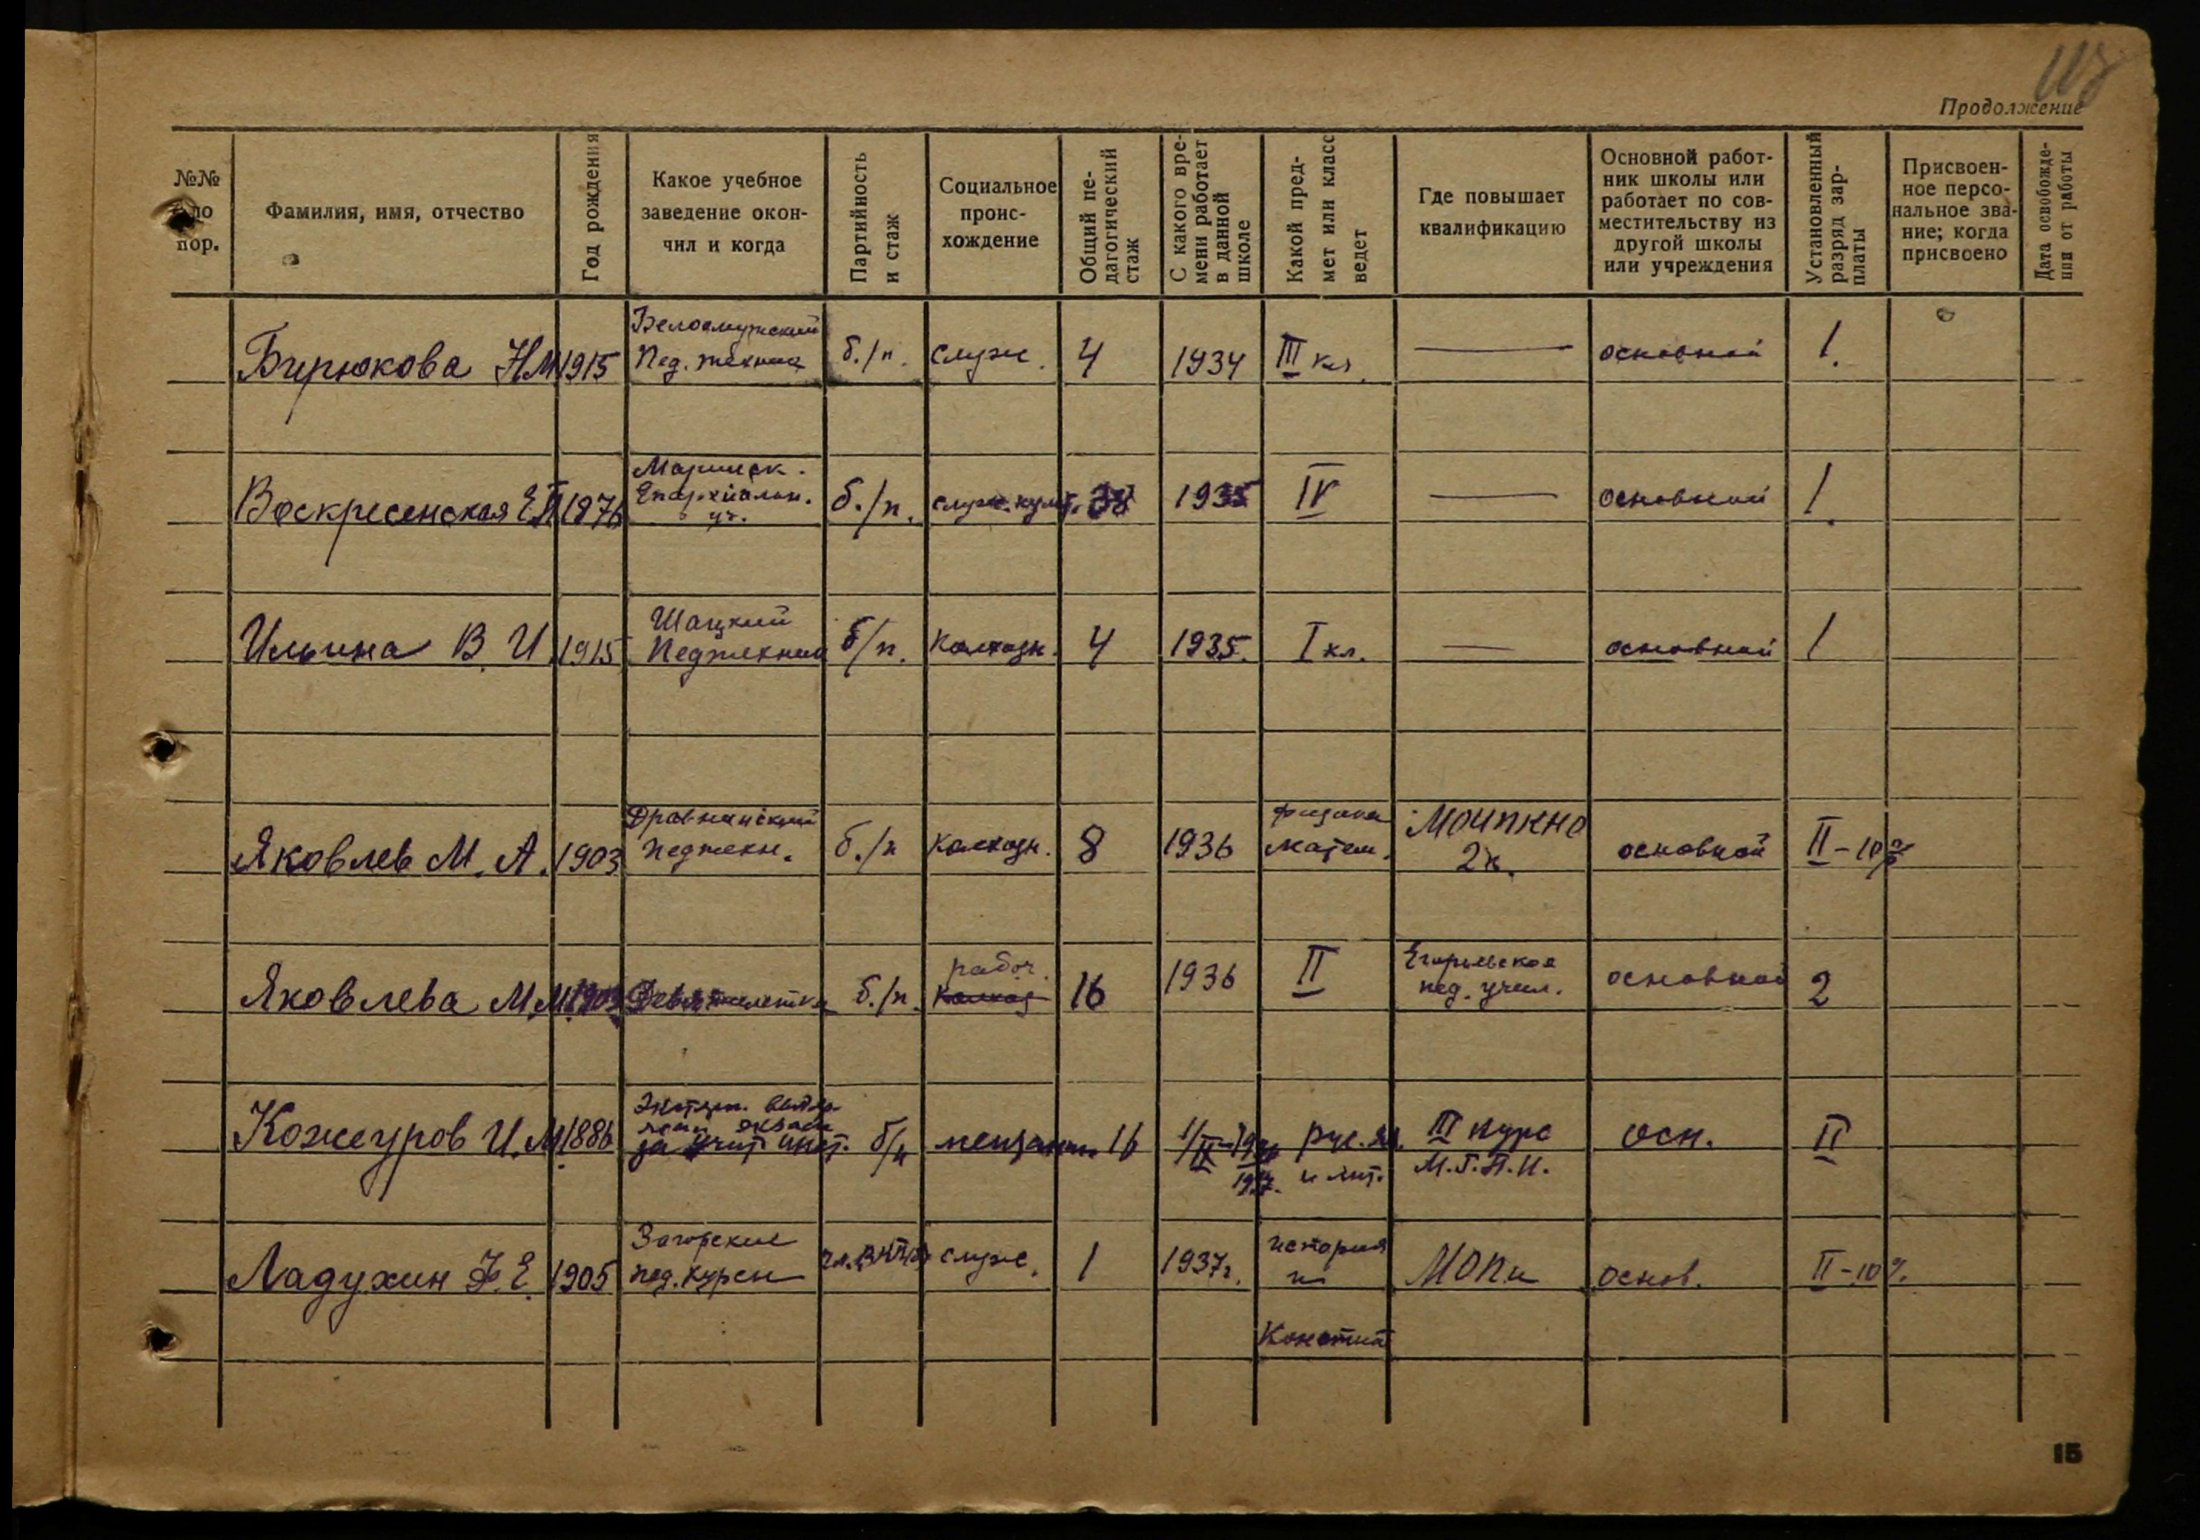 Продолжение
№№ по пор.
Фамилия, имя, отчество
Год рождения
Какое учебное заведение окончил и когда
Партийность и стаж
Социальное происхождение
Общий педагогический стаж
С какого времени работает в данной школе
Какой предмет или класс ведет
Где повышает квалификацию
Основной работник школы или работает по совместительству из другой школы или учреждения
Установленный разряд зарплаты
Присвоенное персональное звание; когда присвоено
Дата освобождения от работы
Бирюкова Н.М 1915 Белоомутский Пед. техник б./п. служ. 4 1934 III кл. — основной 1.
Воскресенская Е.П 1876 Мариинск. Епархиальн. уч. б./п. служ. 1935 IV — основной 1.
Ильина В. И. 1915 Шацкий Педтехник б/п. колхозн. 4 1935. I кл. — основной 1
Яковлев М. А. 1903 педтехн. б./п колхозн. 8 1936 физика матем. 2 к. основной II – 10%
Яковлева М.М. Девятилетка б./п. рабоч. 16 1936 II Егорьевское пед. учил. основной 2
Кожеуров И.М. 1886 за учит. инст. б/п мещанин 16 рус. яз. и лит. III курс М.Г.П.И. осн. II
Ладухин Ф. Е. 1905 Загорские пед. курсы служ. 1 1937г. история и Констит МОПИ основ. II – 10%
15